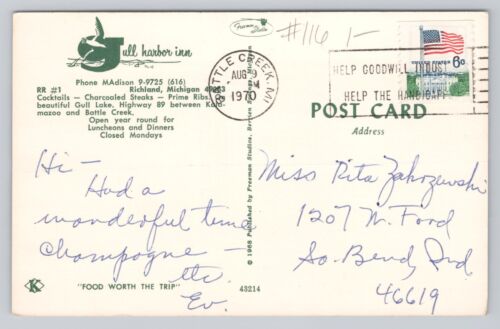 Gull harbor inn
Phone MAdison 9-9725 (616)
RR #1 Richland, Michigan 49083
Cocktails — Charcoaled Steaks — Prime Ribs
beautiful Gull Lake. Highway 89 between Kala-
mazoo and Battle Creek.
Open year round for
Luncheons and Dinners
Closed Mondays
Hi —
Had a
wonderful time
Champagne —
etc.
Ev.
K
"FOOD WORTH THE TRIP"
43214
© 1968 Freeman Studios,
Freeman Studio
#116 1-
BATTLE CREEK, MI
AUG 9
PM
1970
HELP GOODWILL INDUST
HELP THE HANDICAP
UNITED STATES 6c
POST CARD
Address
Miss Rita Zakrzewski
1207 W. Ford
So. Bend, Ind
46619